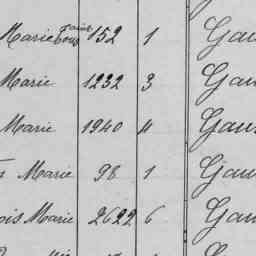 Marie 152 1 Gau
Marie 1232 3 Gau
Marie 1940 4 Gau
Marie 98 1 Gau
ois Marie 2622 6 Gau